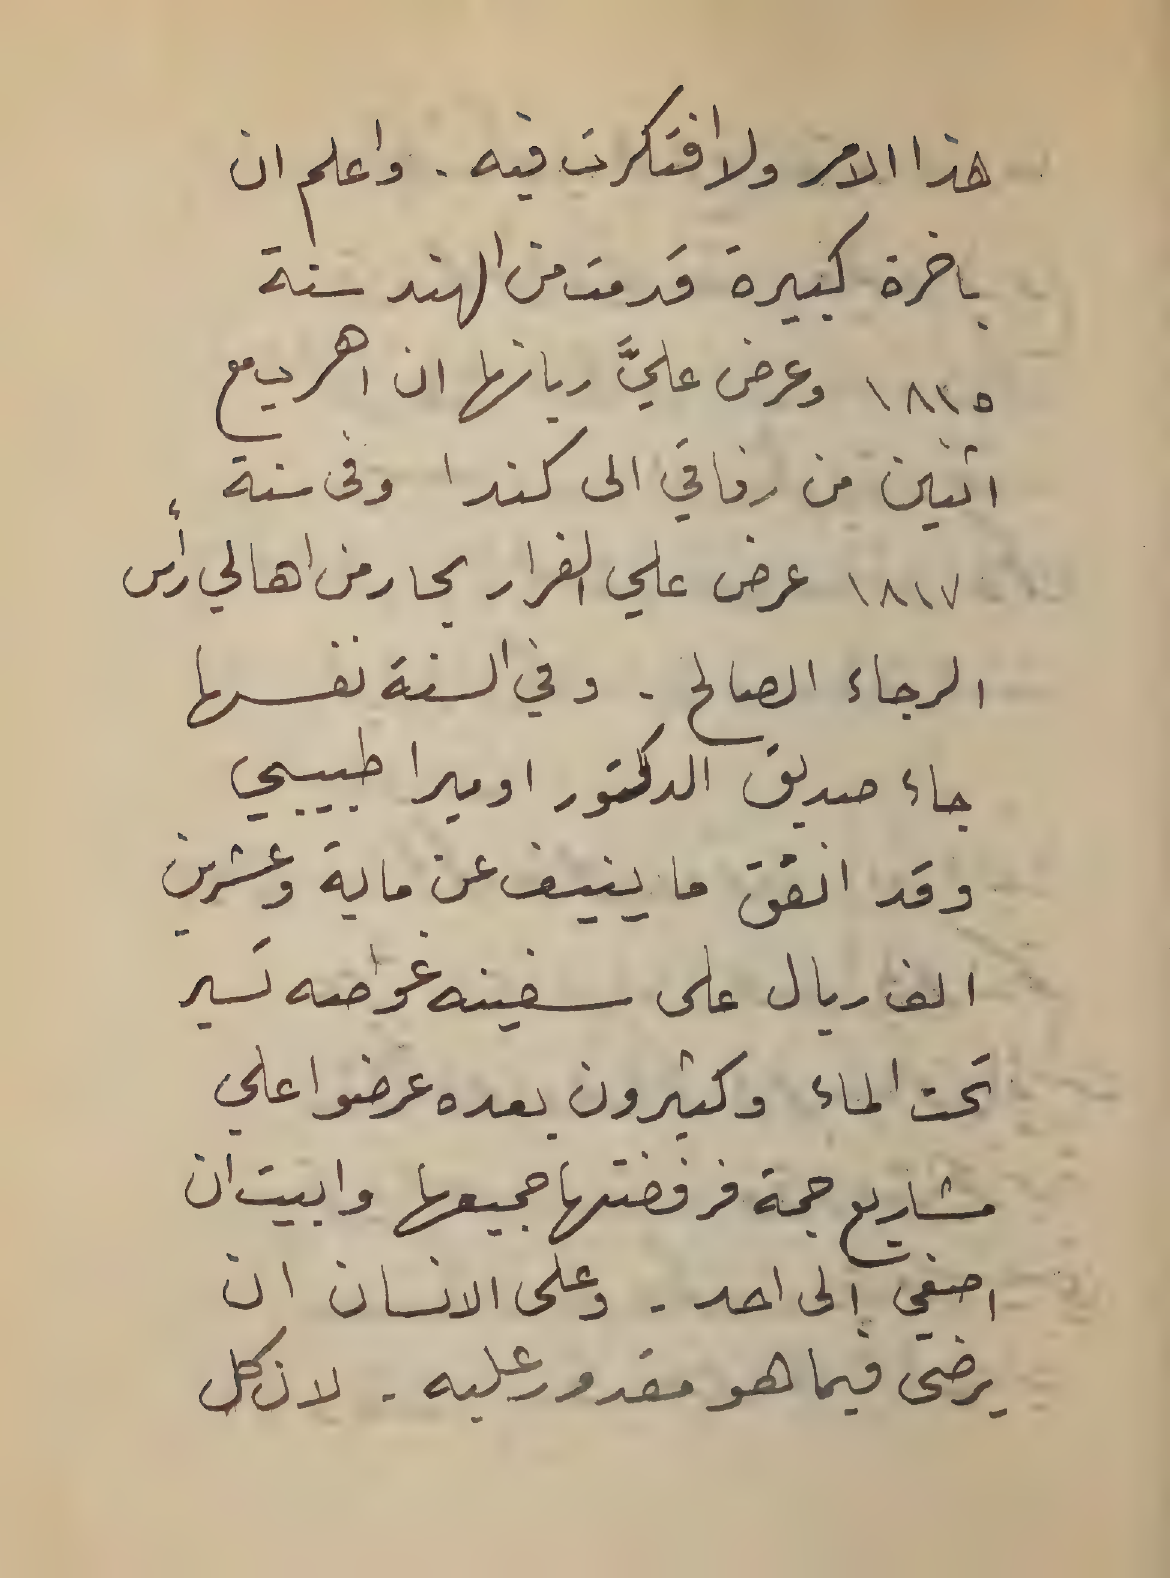 هذا الامر ولا افتكرت فيه . واعلم ان
باخرة كبيرة قدمت من الهند سنة
١٨١٥ وعرض عليَّ ربانها ان اهرب مع
اثنين من رفاقي الى كندا وفى سنة
١٨١٧ عرض علي الفرار بحار من اهالي رأس
الرجاء الصالح . وفي السنة نفسها
جاء صديق الدكتور اوميرا طبيبي
وقد انفق ما ينيف عن ماية وعشرين
الف ريال على سفينه غواصه تسير
تحت الماء وكثيرون بعده عرضوا علي
مشاريع جمة فرفضتها جميعها وابيت ان
اصغي إلى احد . وعلى الانسان ان
يرضى فيما هو مقدور عليه . لان كل